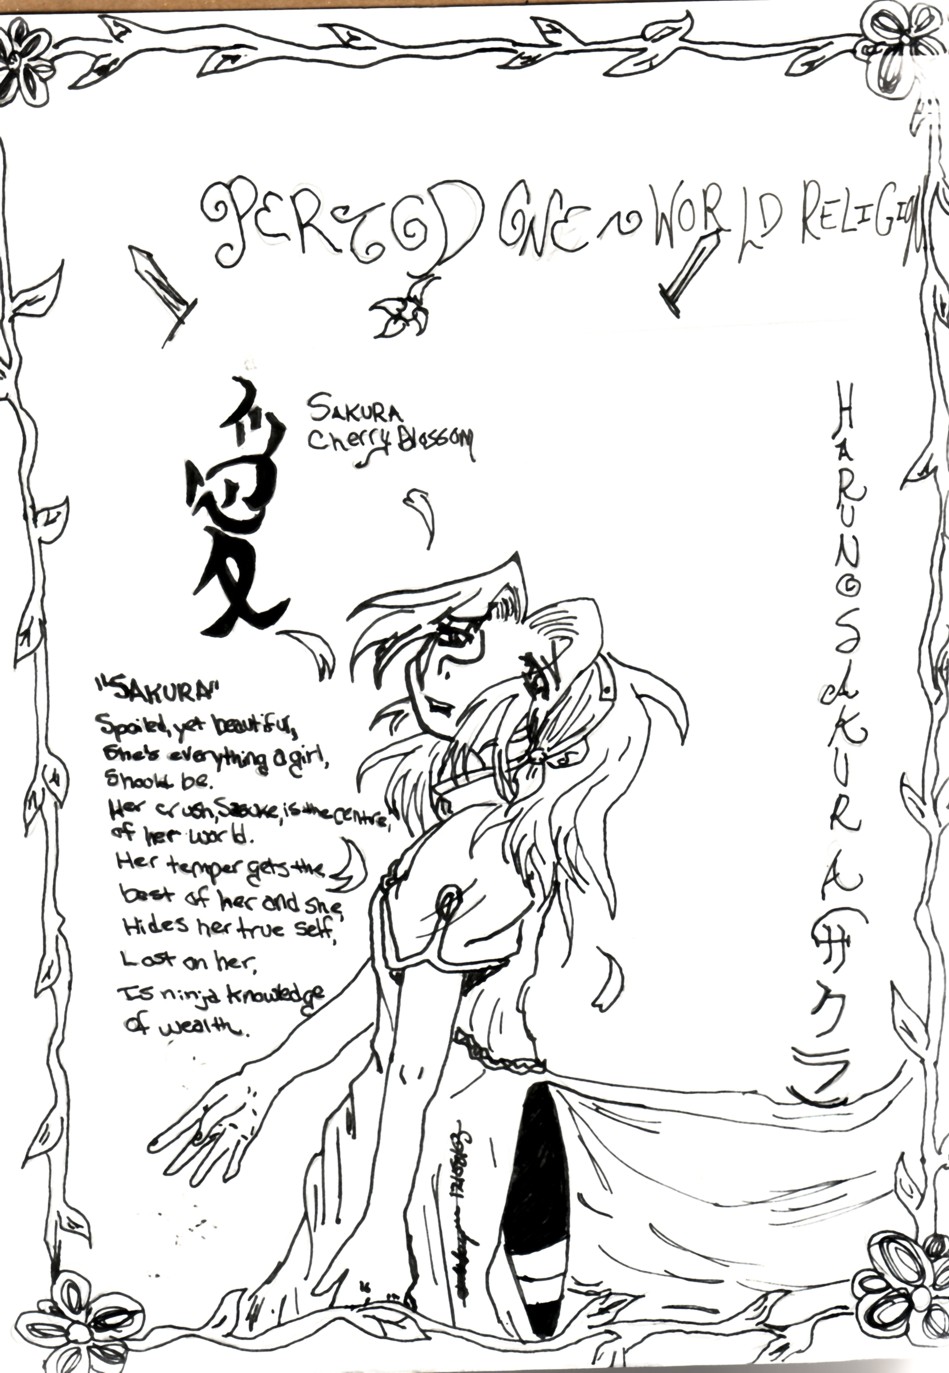 PERIOD ONE ~ WORLD RELIGION
愛
SAKURA
Cherry Blossom
HARUNO SAKURA (サクラ)
"SAKURA"
Spoiled, yet beautiful,
She's everything a girl,
Should be.
Her crush, Sasuke, is the centre,
of her world.
Her temper gets the
best of her and she,
Hides her true self,
Lost on her,
Is ninja knowledge
of wealth.